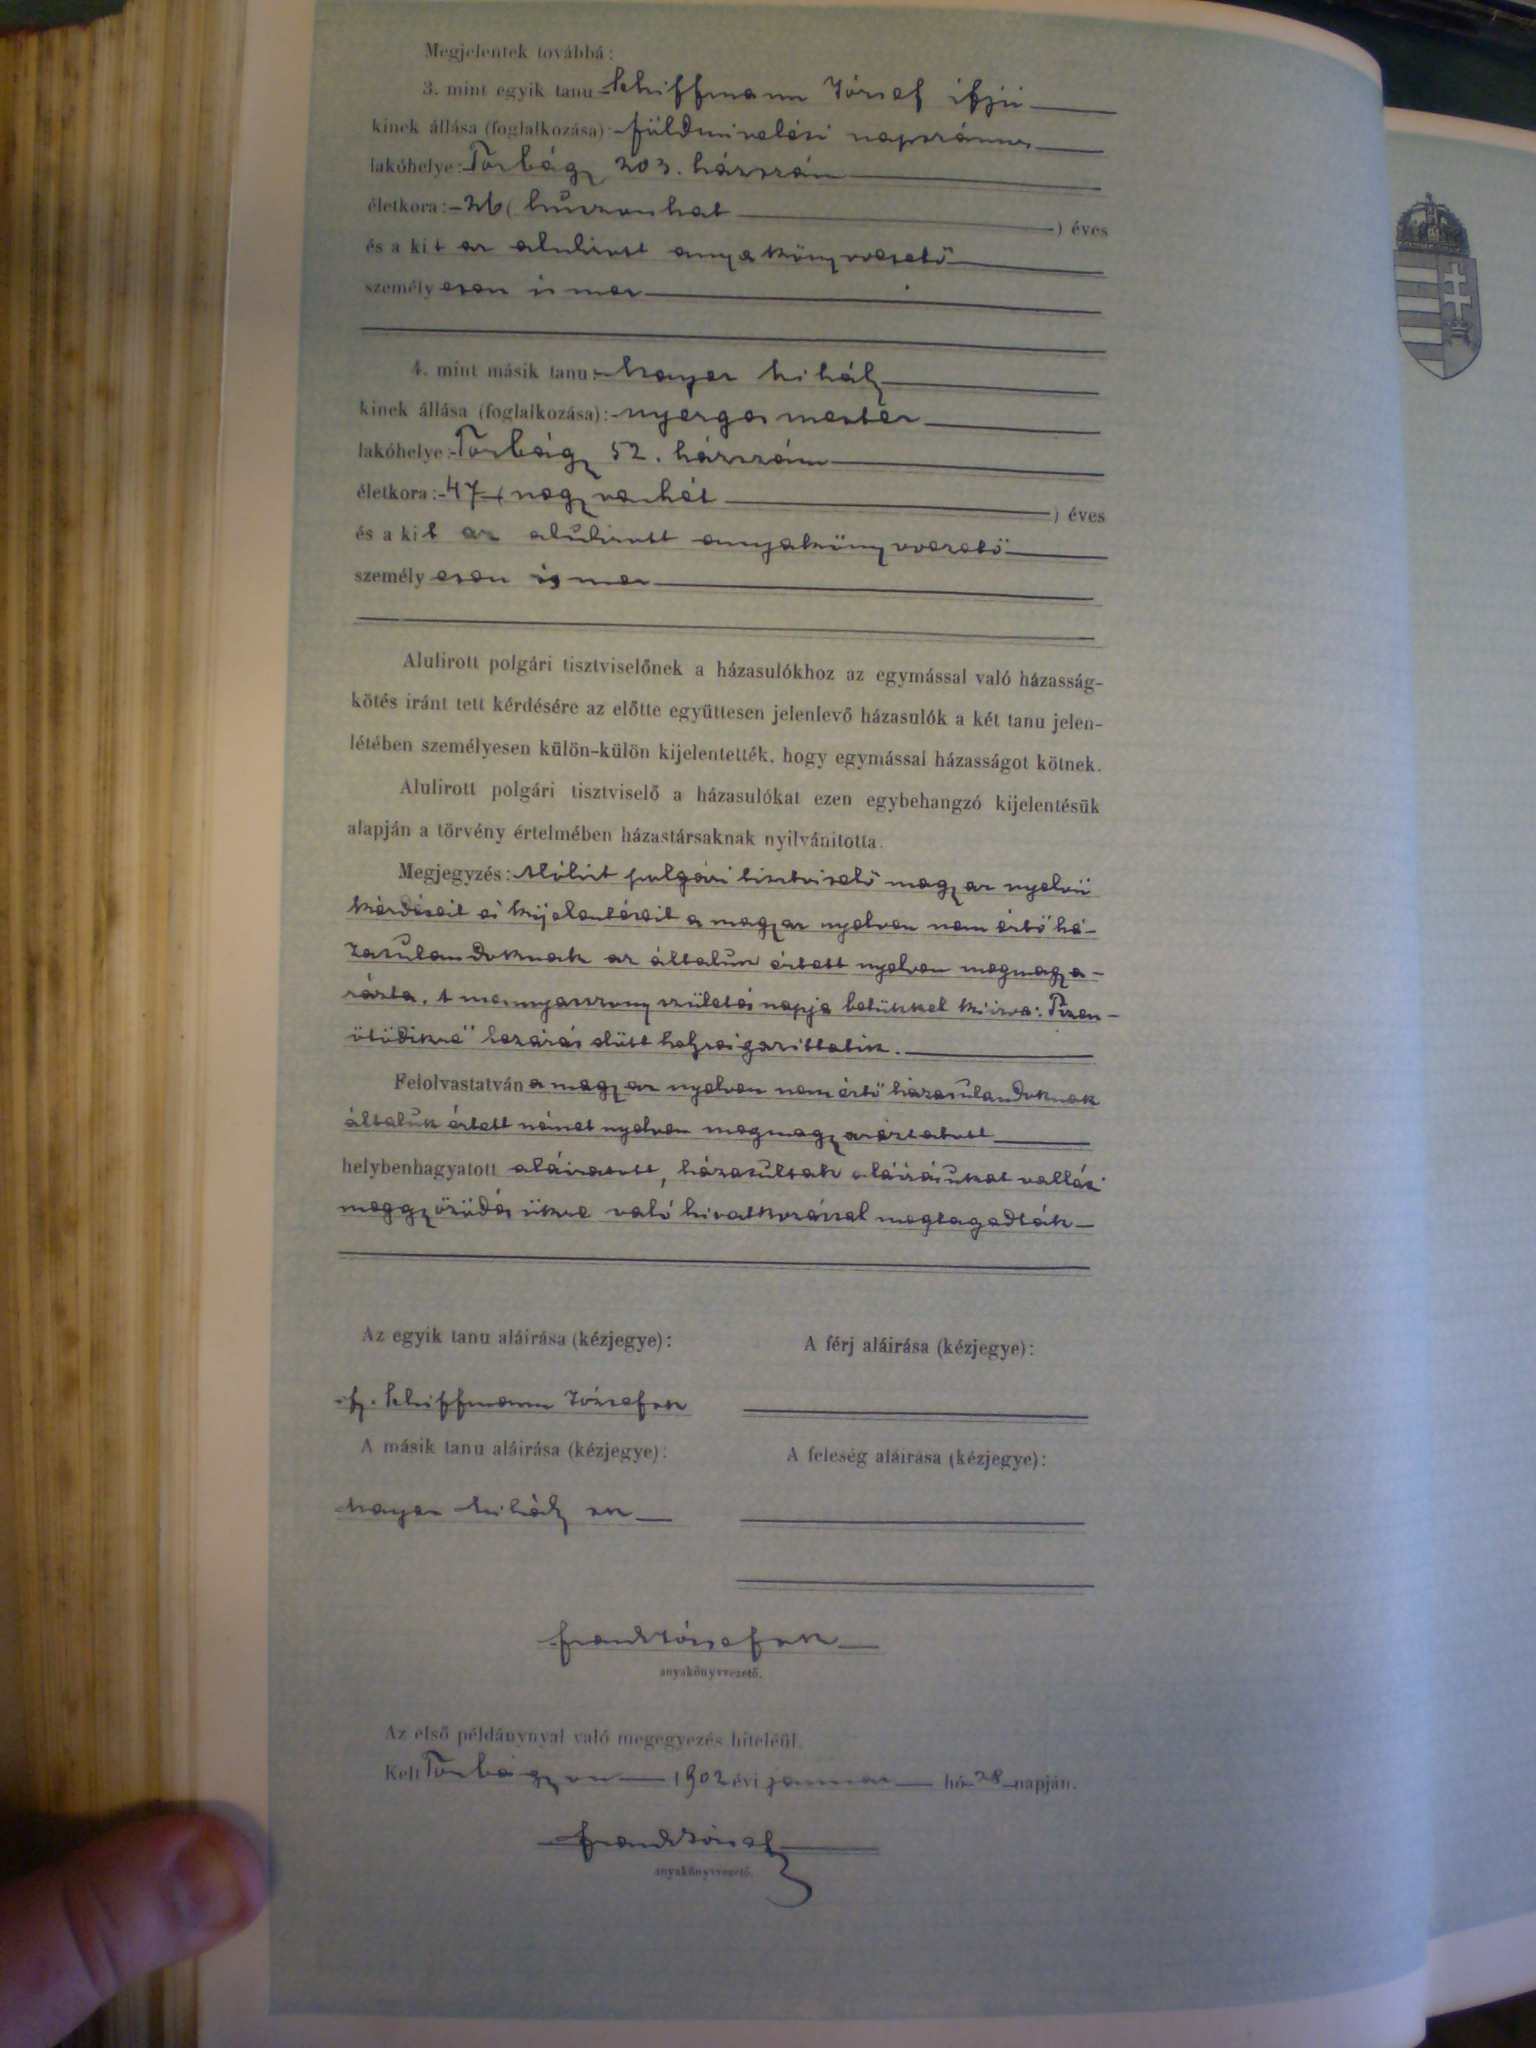 Megjelentek továbbá:
3. mint egyik tanu Schiffmann József ifjú
kinek állása (foglalkozása): földmivelési napszámos
lakóhelye: Torbágy 203. házszám
életkora: 26 ( huszonhat ) éves
és a kit az alulirott anyakönyvvezető
személyesen ismer
4. mint másik tanu: Mayer Mihály
kinek állása (foglalkozása): nyerges mester
lakóhelye: Torbágy 52. házszám
életkora: 47 ( negyvenhét ) éves
és a kit az alulirott anyakönyvvezető
személyesen ismer
Alulirott polgári tisztviselőnek a házasulókhoz az egymással való házasság-
kötés iránt tett kérdésére az előtte együttesen jelenlevő házasulók a két tanu jelen-
létében személyesen külön-külön kijelentették, hogy egymással házasságot kötnek.
Alulirott polgári tisztviselő a házasulókat ezen egybehangzó kijelentésük
alapján a törvény értelmében házastársaknak nyilvánitotta.
Megjegyzés: Alólirt polgári tisztviselő magyar nyelvü
kérdéseit és kijelentéseit a magyar nyelven nem értő há-
zasulandoknak az általuk értett nyelven megmagya-
rázta. A mennyasszony születés napja betükkel kiirva: "Tizen-
ötödikre" lezárás elött helyreigazittatik.
Felolvastatván a magyar nyelven nem értő házasulandoknak
általuk értett német nyelven megmagyaráztatott
helybenhagyatott aláiratott, házasultak aláirásukat vallási
meggyőződésükre való hivatkozással megtagadták
Az egyik tanu aláirása (kézjegye): A férj aláirása (kézjegye):
ifj. Schiffmann József sk
A másik tanu aláirása (kézjegye): A feleség aláirása (kézjegye):
Mayer Mihály sk
Frank József sk
anyakönyvvezető.
Az első példánynyal való megegyezés hiteléül.
Kelt Torbágyon 1902 évi januar hó 28 napján.
Frank József
anyakönyvvezető.